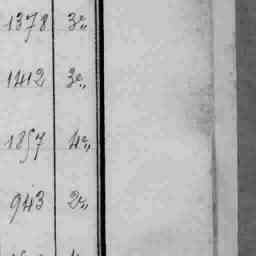 1378 3e„
1412 3e„
1857 4e„
943 2e„